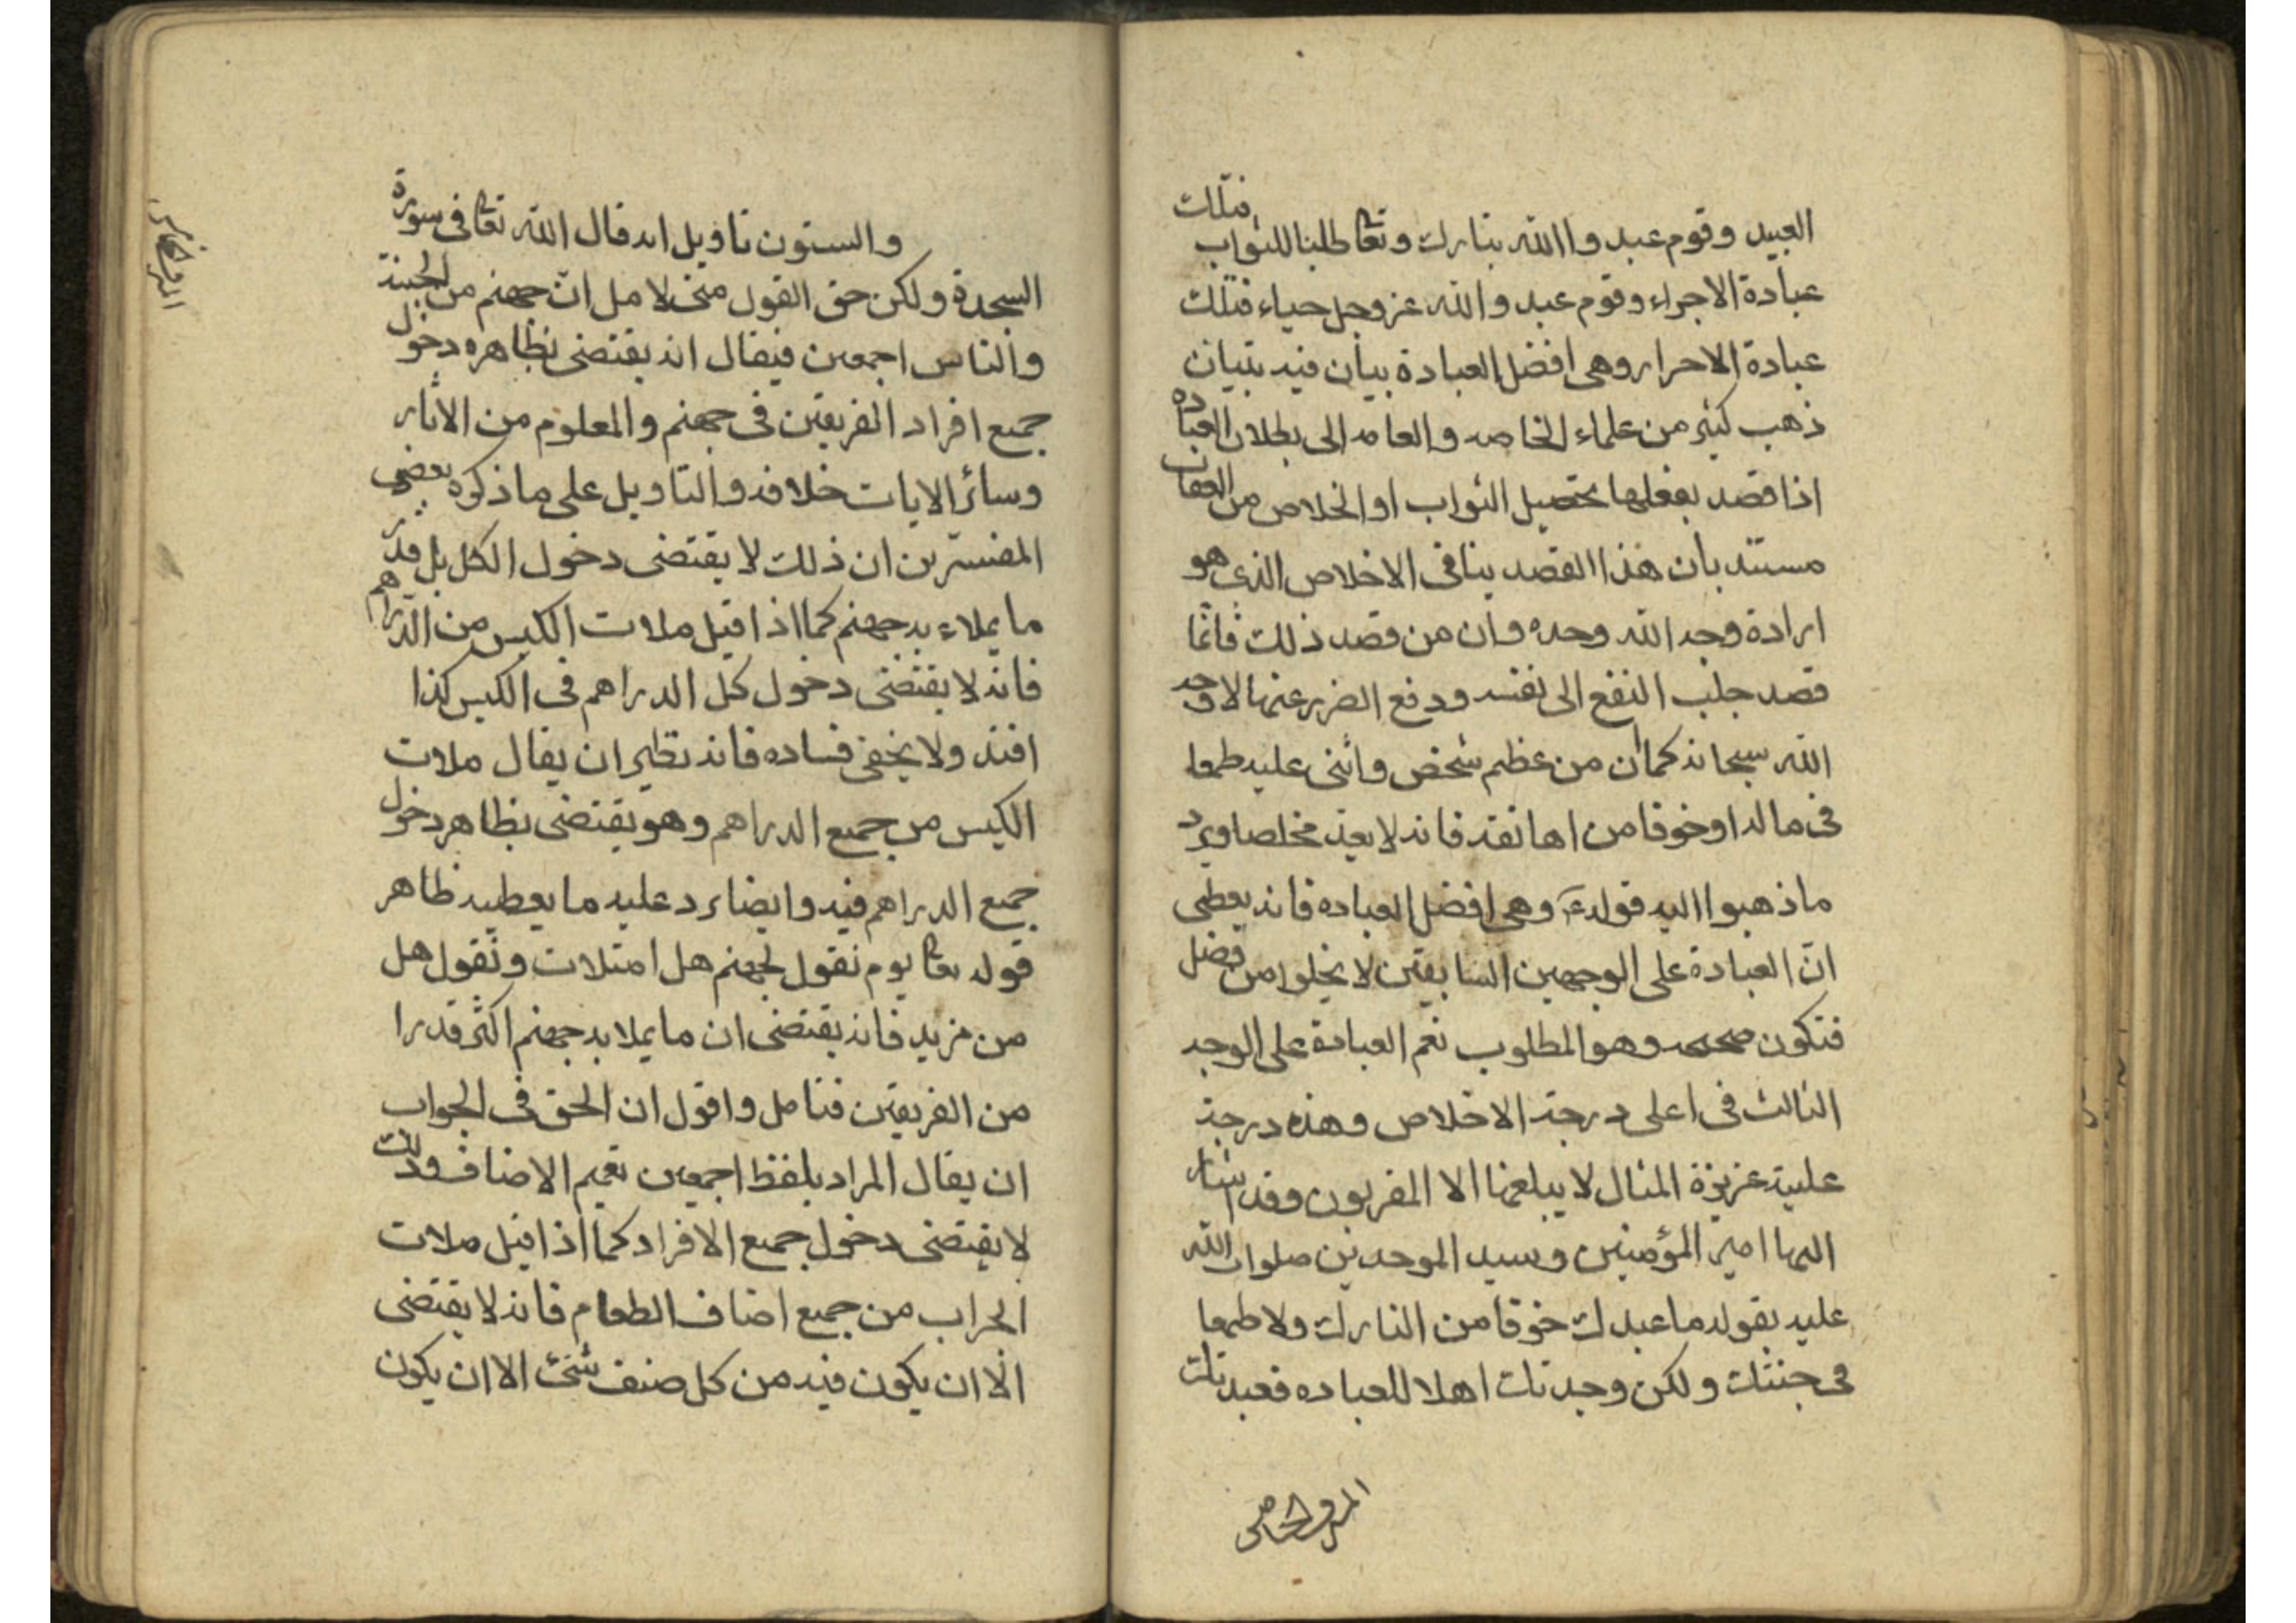 العبيد وقوم عبدوا الله تبارك وتعا طلبا للثواب فتلك
عبادة الاجراء وقوم عبدوا الله عز وجل حياء فتلك
عبادة الاحرار وهى افضل العبادة بيان فيه بتيان
ذهب كثير من علماء الخاصه والعامه الى بطلان العباده
اذا قصد بفعلها تحصيل الثواب او الخلاص من العقاب
مستند بان هذا القصد ينافى الاخلاص الذى هو
ارادة وجه الله وحده وان من قصد ذلك فانما
قصد جلب النفع الى نفسه ودفع الضرر عنها لا وجه
الله سبحانه كما ان من عظم شخص واثنى عليه طمعا
فى ماله او خوفا من اهانته فانه لا يعد مخلصا ويرد
ما ذهبوا اليه قوله ع وهى افضل العباده فانه يعطى
ان العبادة على الوجهين السابقين لا يخلوا من فضل
فتكون صحيحه وهو المطلوب نعم العبادة على الوجه
الثالث فى اعلى درجة الاخلاص وهذه درجة
علية عزيزة المنال لا يبلغها الا المقربون وقد اشار
اليها امير المؤمنين وسيد الموحدين صلوات الله
عليه بقوله ما عبدك خوفا من النارك ولا طمعا
فى جنتك ولكن وجدتك اهلا للعباده فعبدتك
والستون تاويل ايه قال الله تعا فى سورة
السجدة ولكن حق القول منى لاملان جهنم من الجنة
والناس اجمعين فيقال انه يقتضى بظاهره دخول
جميع افراد الفريقين فى جهنم والمعلوم من الاثار
وسائر الايات خلافه والتاويل على ما ذكره بعض
المفسرين ان ذلك لا يقتضى دخول الكل بل قدر
ما يملاء به جهنم كما اذا قيل ملات الكيس من الدراهم
فانه لا يقتضى دخول كل الدراهم فى الكيس كذا
افيد ولا يخفى فساده فانه نظير ان يقال ملات
الكيس من جميع الدراهم وهو يقتضى بظاهره دخول
جميع الدراهم فيه وايضا يرد عليه ما يعطيه ظاهر
قوله تعا يوم نقول لجهنم هل امتلات وتقول هل
من مزيد فانه يقتضى ان ما يملا به جهنم اكثر قدرا
من الفريقين فتامل واقول ان الحق فى الجواب
ان يقال المراد بلفظ اجمعين تعميم الاصناف وذلك
لا يقتضى دخول جميع الافراد كما اذا قيل ملات
الجراب من جميع اصناف الطعام فانه لا يقتضى
الا ان يكون فيه من كل صنف شئ الا ان يكون